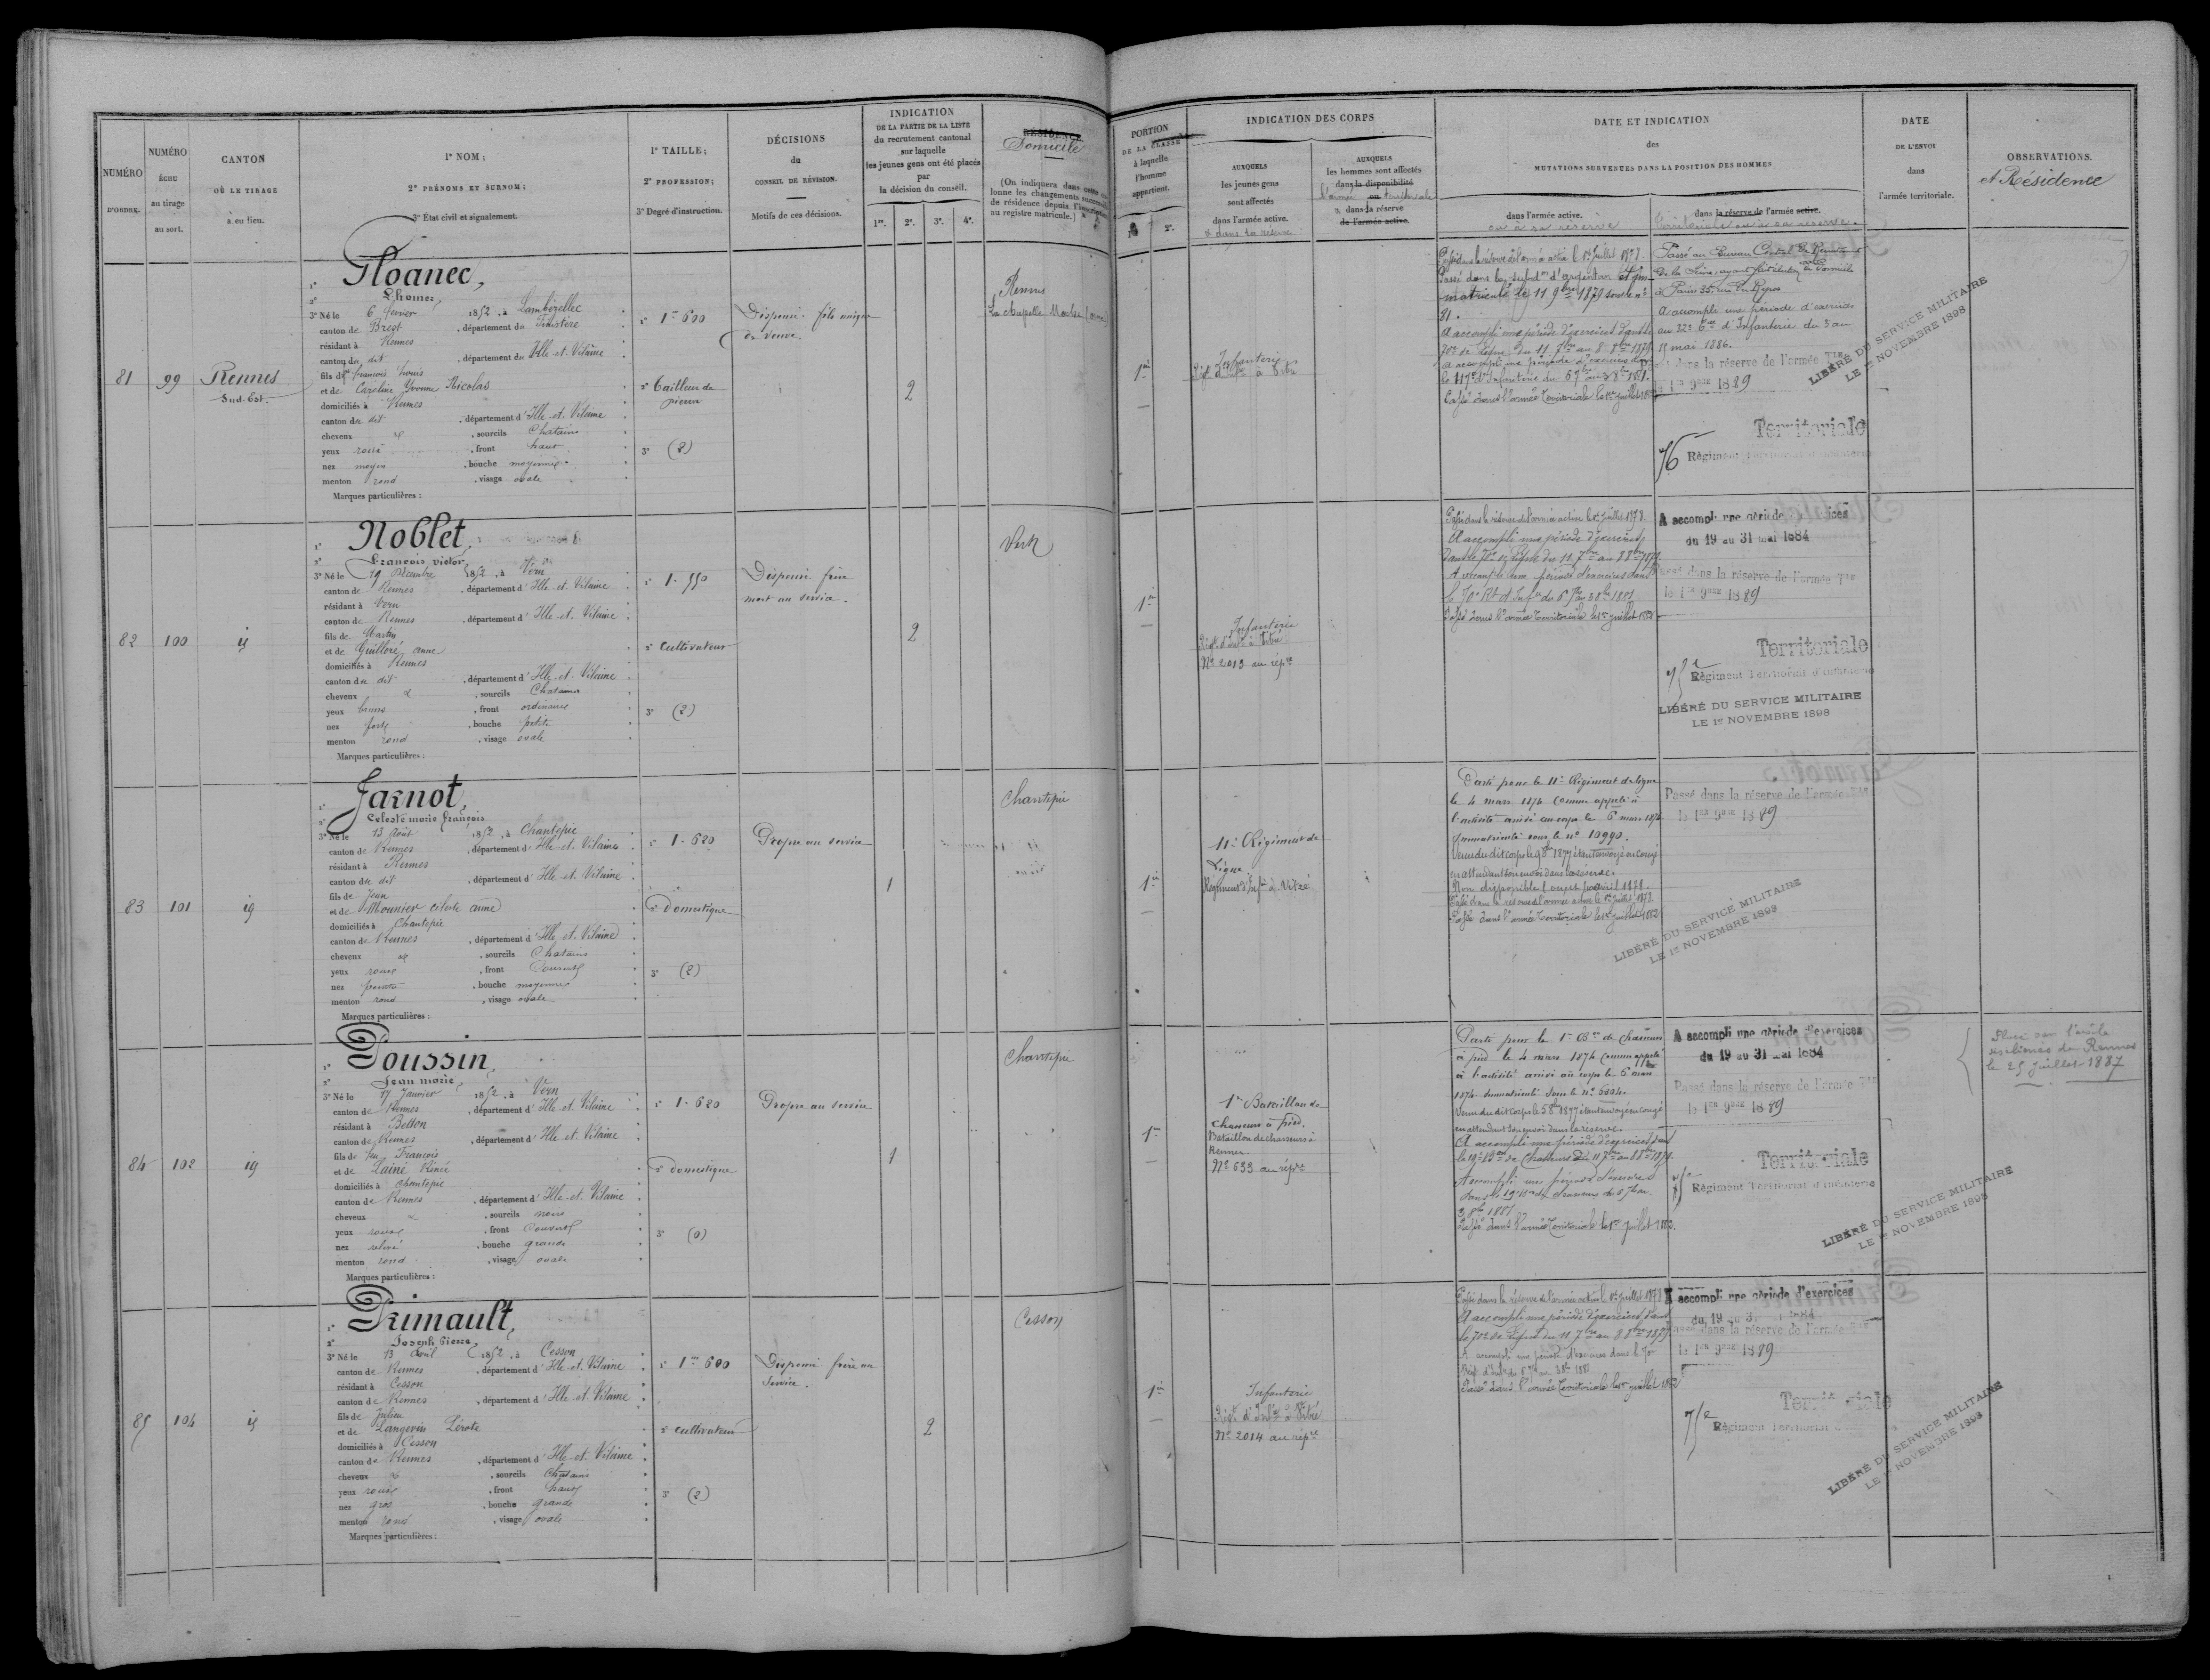 NUMÉRO
D'ORDRE.
NUMÉRO
ÉCHU
au tirage
au sort.
CANTON
OÙ LE TIRAGE
a eu lieu.
1° NOM;
2° PRÉNOMS ET SURNOM;
3° État civil et signalement.
1° TAILLE;
2° PROFESSION;
3° Degré d'instruction.
DÉCISIONS
du
CONSEIL DE RÉVISION.
Motifs de ces décisions.
INDICATION
DE LA PARTIE DE LA LISTE
du recrutement cantonal
sur laquelle
les jeunes gens ont été placés
par
la décision du conseil.
1re. 2e. 3e. 4e.
RÉSIDENCE
Domicile
(On indiquera dans cette
lonne les changements successifs
de résidence depuis l'inscription
au registre matricule.)
PORTION
DE LA CLASSE
à laquelle
l'homme
appartient.
2e.
INDICATION DES CORPS
AUXQUELS
les jeunes gens
sont affectés
dans l'armée active.
& dans sa réserve
AUXQUELS
les hommes sont affectés
dans la disponibilité
l'armée ou territoriale
2. dans la réserve
de l'armée active.
DATE ET INDICATION
des
MUTATIONS SURVENUES DANS LA POSITION DES HOMMES
dans l'armée active.
ou à sa réserve
dans la réserve de l'armée active.
Territoriale ou à sa réserve.
DATE
DE L'ENVOI
dans
l'armée territoriale.
OBSERVATIONS.
et Résidence
81
99
Rennes
Sud-Est.
Floanec,
3° Né le 6 février 1852, à Lambézellec
canton de Brest, département du Finistère
résidant à Rennes
canton du dit, département d'Ille et Vilaine
fils de françois Louis
et de Caroline Yvonne Nicolas
domiciliés à Rennes
canton du dit, département d'Ille et Vilaine
cheveux &, sourcils Chatains
yeux roux, front haut
nez moyen, bouche moyenne
menton rond, visage ovale
Marques particulières:
1m 600
2° tailleur de
pierres
3° (2)
Dispensé fils unique
de veuve.
2
Rennes
La chapelle
1re
Infanterie
Régt d'Infie à Vitré
Passé dans la réserve de l'armée active le 1er Juillet 1878.
Passé dans la subdon d'argentan et im-
matriculé le 11 9bre 1879 sous le n°
81.
A accompli une période d'exercices dans le
70e de ligne du 11 7bre au 8 8bre 1879
A accompli une période d'exercices dans
le 117e d'Infanterie du 6 7bre au 3 8bre 1881.
Passé dans l'armée Territoriale le 1er juillet 1882
Passé au Bureau Central de Recrutement
de la Seine, ayant fait élection de Domicile
à Paris 35, rue du Repos
a accompli une période d'exercices
au 32e d'Infanterie du 3 au
15 mai 1886.
Passé dans la réserve de l'armée Tle
le 1er 9bre 1889
Territoriale
76 Régiment Territorial d'Infanterie
LIBÉRÉ DU SERVICE MILITAIRE
LE 1er NOVEMBRE 1898
82
100
id
Noblet,
François victor,
3° Né le 19 Décembre 1852, à Vern
canton de Rennes, département d'Ille et Vilaine
résidant à Vern
canton de Rennes, département d'Ille et Vilaine
fils de Martin
et de Guilloré anne
domiciliés à Rennes
canton du dit, département d'Ille et Vilaine
cheveux &, sourcils Chatains
yeux bruns, front ordinaire
nez fort, bouche petite
menton rond, visage ovale
Marques particulières:
1. 550
2° Cultivateur
3° (2)
Dispensé frère
mort au service.
2
Vern
1re
Infanterie
Régt d'Infie à Vitré
N° 2013 au répre
Passé dans la réserve de l'armée active le 1er Juillet 1878.
A accompli une période d'exercices
dans le 70e de Ligne du 11 7bre au 8 8bre 1879.
A accompli une période d'exercices dans
le 70e Rt d'Infie du 6 7bre au 3 8bre 1881
Passé dans l'armée Territoriale le 1er juillet 1882
A accompli une période d'exercices
du 19 au 31 mai 1884
Passé dans la réserve de l'armée Tle
le 1er 9bre 1889
Territoriale
75e Régiment Territorial d'Infanterie
LIBÉRÉ DU SERVICE MILITAIRE
LE 1er NOVEMBRE 1898
83
101
id
Jarnot,
Celeste marie françois
3° Né le 13 Août 1852, à Chantepie
canton de Rennes, département d'Ille et Vilaine
résidant à Rennes
canton du dit, département d'Ille et Vilaine
fils de Jean
et de Mounier céleste anne
domiciliés à Chantepie
canton de Rennes, département d'Ille et Vilaine
cheveux &, sourcils Chatains
yeux roux, front Couvert
nez pointu, bouche moyenne
menton rond, visage ovale
Marques particulières:
1. 620
2° domestique
3° (2)
Propre au service
1
Chantepie
1re
11e Régiment de
Ligne
Régiment d'Infie à Vitré
Parti pour le 11e Régiment de ligne
le 4 mars 1874 comme appelé à
l'activité arrivé au corps le 6 mars 1874
Immatriculé sous le n° 10990.
Venu du dit corps le 9 8bre 1877 étant envoyé en congé
en attendant son envoi dans la réserve.
Non disponible 1 avril 1878.
Passé dans la réserve de l'armée active le 1er Juillet 1878.
Passé dans l'armée Territoriale le 1er juillet 1882
Passé dans la réserve de l'armée Tle
le 1er 9bre 1889
LIBÉRÉ DU SERVICE MILITAIRE
LE 1er NOVEMBRE 1898
84
102
id
Poussin,
Jean marie,
3° Né le 17 Janvier 1852, à Vern
canton de Rennes, département d'Ille et Vilaine
résidant à Betton
canton de Rennes, département d'Ille et Vilaine
fils de feu François
et de Lainé Renée
domiciliés à Chantepie
canton de Rennes, département d'Ille et Vilaine
cheveux &, sourcils noirs
yeux roux, front Couvert
nez relevé, bouche grande
menton rond, visage ovale
Marques particulières:
1. 620
2° domestique
3° (0)
Propre au service
1
Chantepie
1re
1er Bataillon de
Chasseurs à pied.
Bataillon de chasseurs à
Rennes
N° 633 au répre
Parti pour le 1er Bon de Chasseurs
à pied le 4 mars 1874 comme appelé
à l'activité arrivé au corps le 6 mars
1874 Immatriculé sous le n° 6604.
Venu du dit corps le 5 8bre 1877 étant envoyé en congé
en attendant son envoi dans la réserve.
A accompli une période d'exercices dans
le 19e Bon de Chasseurs du 11 7bre au 8 8bre 1879.
A accompli une période d'exercices
dans le 19e Bon de chasseurs du 6 7bre au
3 8bre 1881
Passé dans l'armée Territoriale le 1er juillet 1882.
A accompli une période d'exercices
du 19 au 31 mai 1884
Passé dans la réserve de l'armée Tle
le 1er 9bre 1889
Territoriale
75e Régiment Territorial d'Infanterie
LIBÉRÉ DU SERVICE MILITAIRE
LE 1er NOVEMBRE 1898
Placé dans l'asile
de Rennes
le 25 Juillet 1887
85
104
id
Primault,
Joseph Pierre,
3° Né le 13 avril 1852, à Cesson
canton de Rennes, département d'Ille et Vilaine
résidant à Cesson
canton de Rennes, département d'Ille et Vilaine
fils de Julien
et de Langevin Pérote
domiciliés à Cesson
canton de Rennes, département d'Ille et Vilaine
cheveux &, sourcils Chatains
yeux roux, front haut
nez gros, bouche grande
menton rond, visage ovale
Marques particulières:
1m 600
2° cultivateur
3° (2)
Dispensé frère au
service.
2
Cesson
1re
Infanterie
Régt d'Infie à Vitré
N° 2014 au répre
Passé dans la réserve de l'armée active le 1er Juillet 1878
A accompli une période d'exercices dans
le 70e de Ligne du 11 7bre au 8 8bre 1879
A accompli une période d'exercices dans le 70e
Régt d'Infie du 6 7bre au 3 8bre 1881
Passé dans l'armée Territoriale le 1er juillet 1882
A accompli une période d'exercices
du 19 au 31 mai 1884
Passé dans la réserve de l'armée Tle
le 1er 9bre 1889
Territoriale
75e Régiment Territorial
LIBÉRÉ DU SERVICE MILITAIRE
LE 1er NOVEMBRE 1898